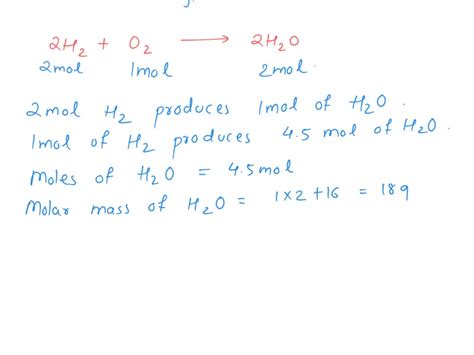 2H₂ + O₂ ⟶ 2H₂O
2mol 1mol 2mol.
2mol H₂ produces 1mol of H₂O.
1mol of H₂ produces 4.5 mol of H₂O.
Moles of H₂O = 4.5mol
Molar mass of H₂O = 1×2+16 = 18g